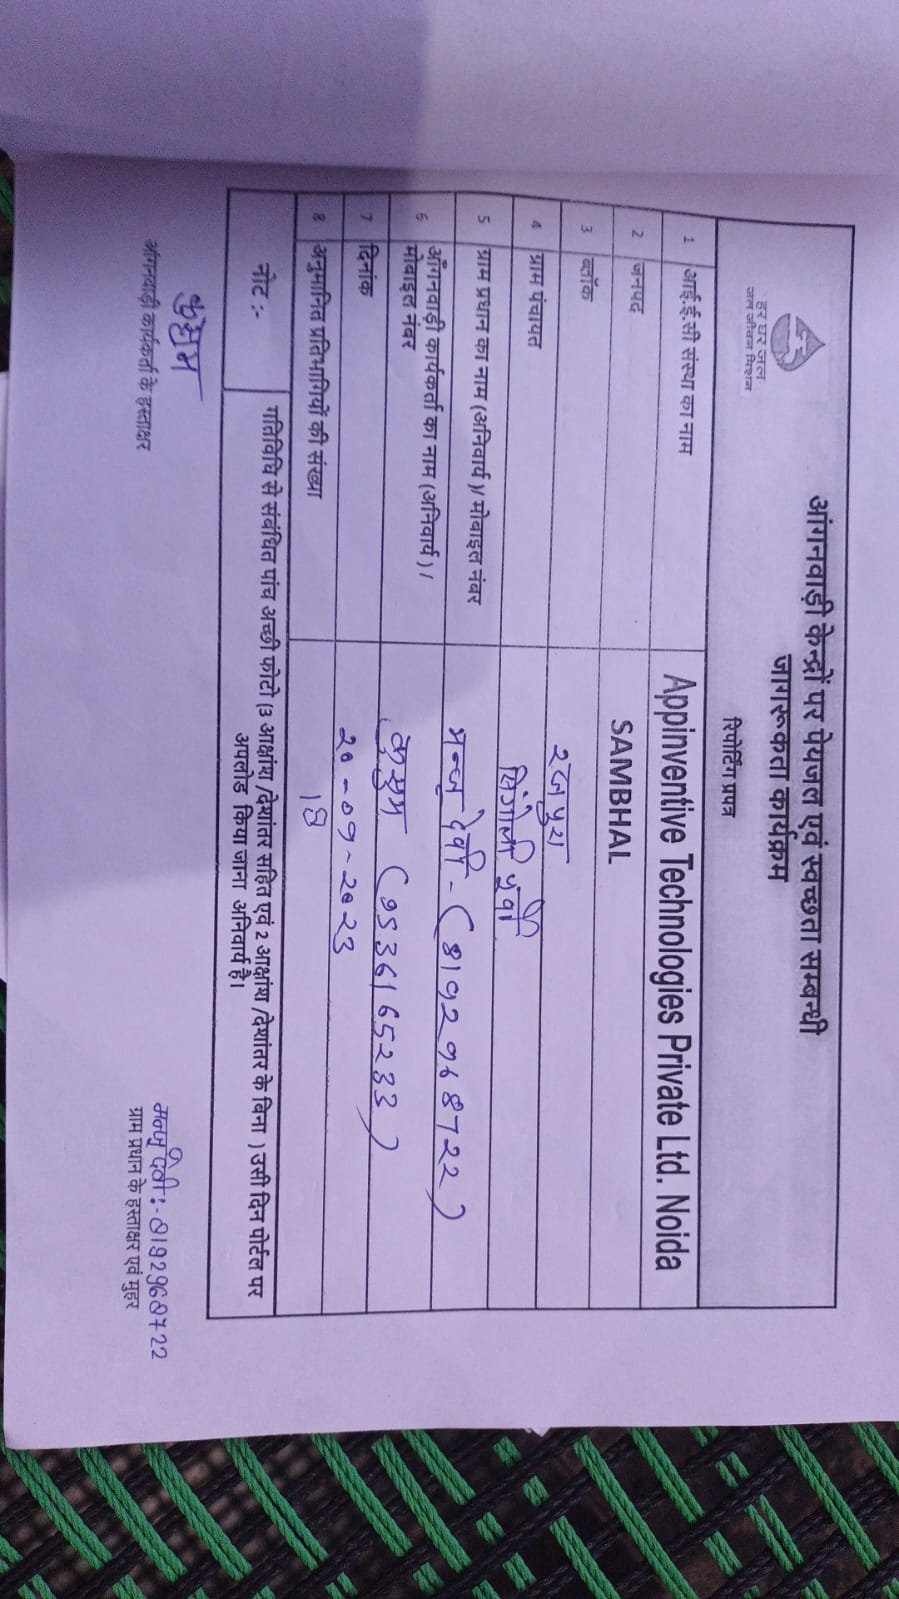 हर घर जल
जल जीवन मिशन
आंगनवाड़ी केन्द्रों पर पेयजल एवं स्वच्छता सम्बन्धी
जागरूकता कार्यक्रम
रिपोर्टिंग प्रपत्र
1 आई.ई.सी संस्था का नाम Appinventive Technologies Private Ltd. Noida
2 जनपद SAMBHAL
3 ब्लॉक रजपुरा
4 ग्राम पंचायत सिंगौली पूर्वी
5 ग्राम प्रधान का नाम (अनिवार्य)/ मोबाइल नंबर मन्जू देवी - (8192968722)
6 आँगनवाड़ी कार्यकर्ता का नाम (अनिवार्य) /
मोबाइल नंबर कुसुम (9536165233)
7 दिनांक 20-09-2023
8 अनुमानित प्रतिभागियों की संख्या 18
नोट :- गतिविधि से संबंधित पांच अच्छी फोटो (3 आक्षांश /देशांतर सहित एवं 2 आक्षांश /देशांतर के बिना ) उसी दिन पोर्टल पर
अपलोड किया जाना अनिवार्य है।
कुसुम
आंगनवाड़ी कार्यकर्ता के हस्ताक्षर
मन्जु देवी:- 8192968722
ग्राम प्रधान के हस्ताक्षर एवं मुहर